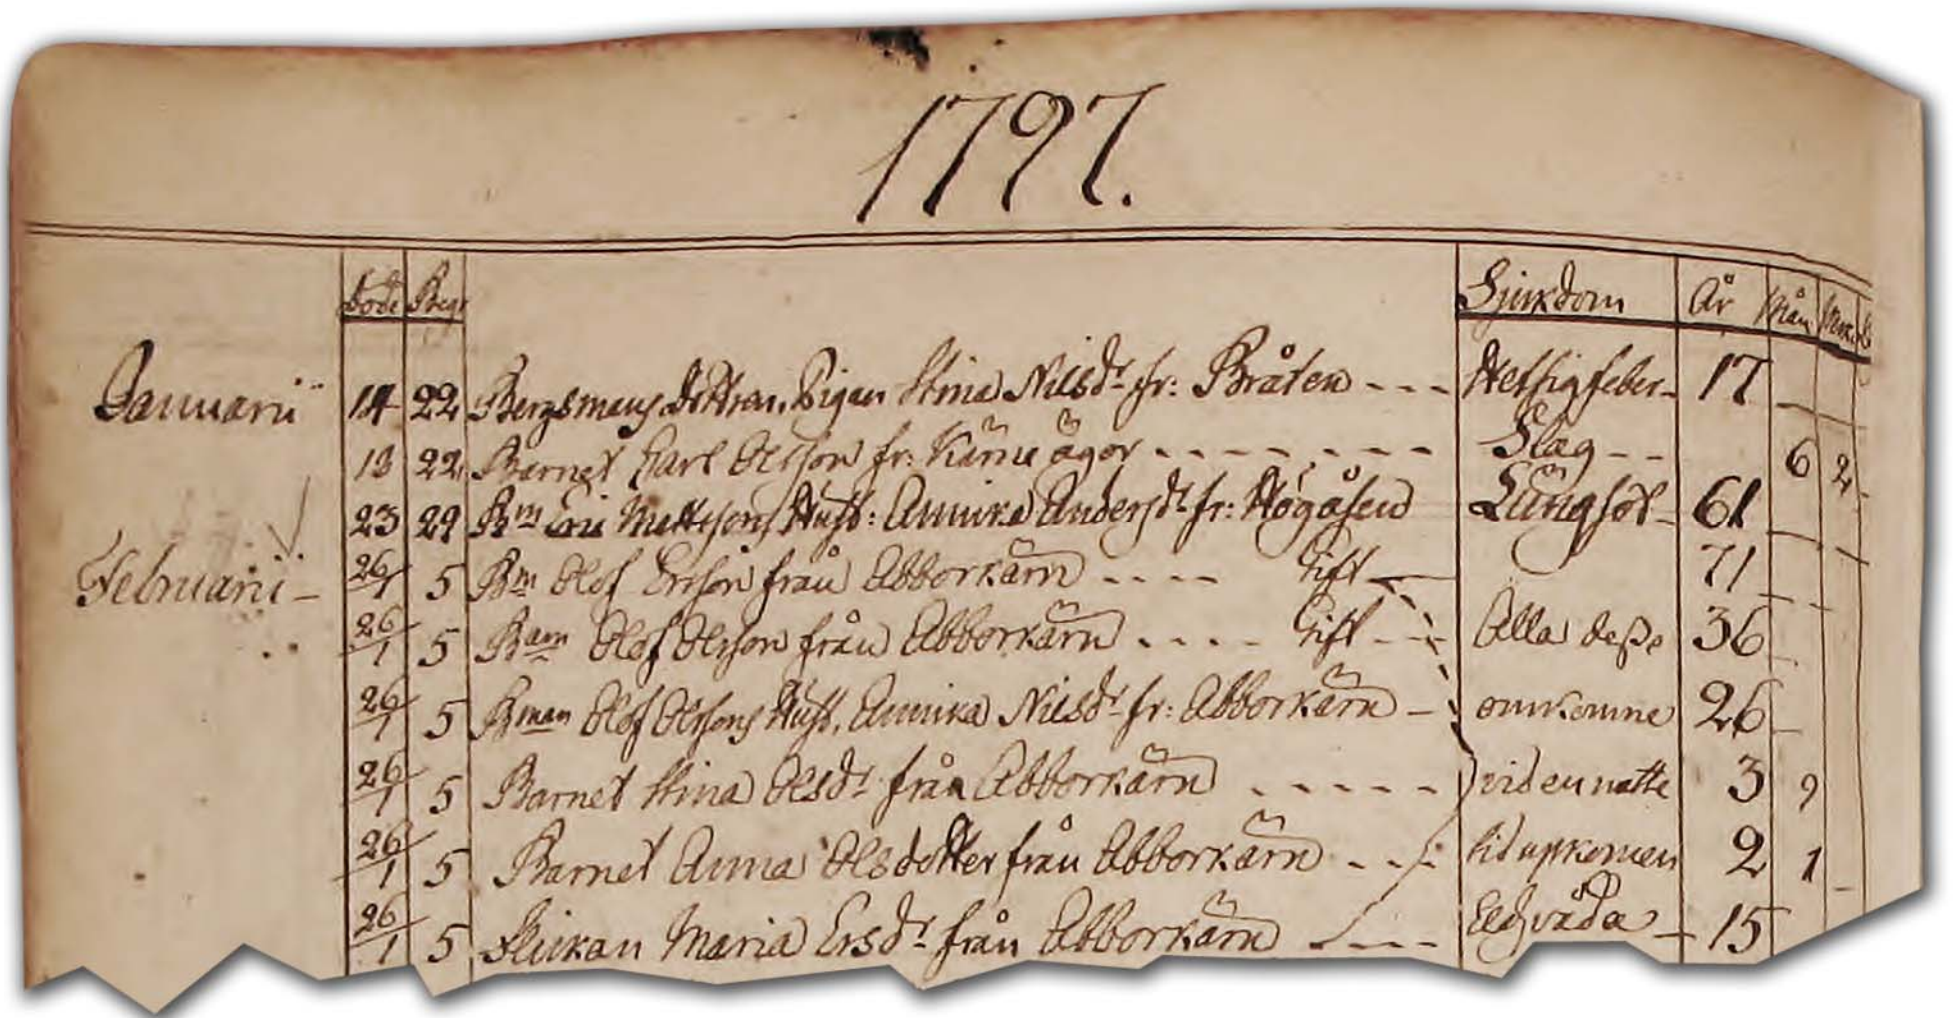 1797.
Döde Begr Sjukdom År Mån
Januarii 14 22 Bergsmans dottren, Pigan Stina Nilsdr fr: Bråten - - - Hetsigfeber - 17
13 22 Barnet Carl Olsson fr: Kärne ägor - - - - - - - Slag - - 6 2
23 29 Bm Eric Mattsons Hust: Annika Andersdr fr: Högåsen Lungsot - 61
Februarii - 26/1 5 Bm Olof Ersson från Abborkärn - - - - Gift 71
26/1 5 Bm Olof Olsson från Abborkärn - - - - Gift - - Alla desse 36
26/1 5 Bman Olof Olssons Hust. Annika Nilsdr fr: Abborkärn - omkomne 26
26/1 5 Barnet Stina Olsdr från Abborkärn - - - - - vid en natte 3 9
26/1 5 Barnet Anna Olsdotter från Abborkärn - - - tid upkommen 2 1
26/1 5 Flickan Maria Ersdr från Abborkärn - - - Eldsvåda - 15